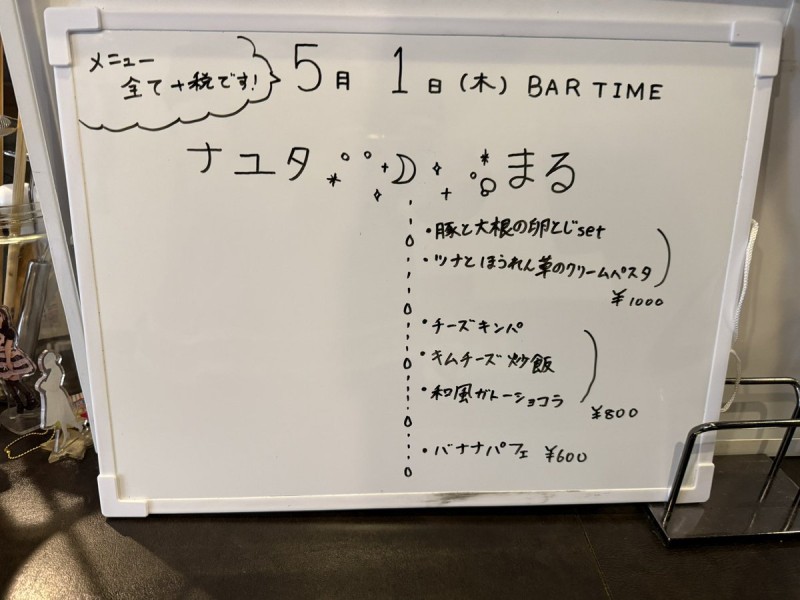 メニュー
全て+税です!
5月 1日(木) BAR TIME
ナユタ まる
・豚と大根の卵とじset
・ツナとほうれん草のクリームペスタ
¥1000
・チーズキンパ
・キムチーズ炒飯
・和風ガトーショコラ
¥800
・バナナパフェ ¥600